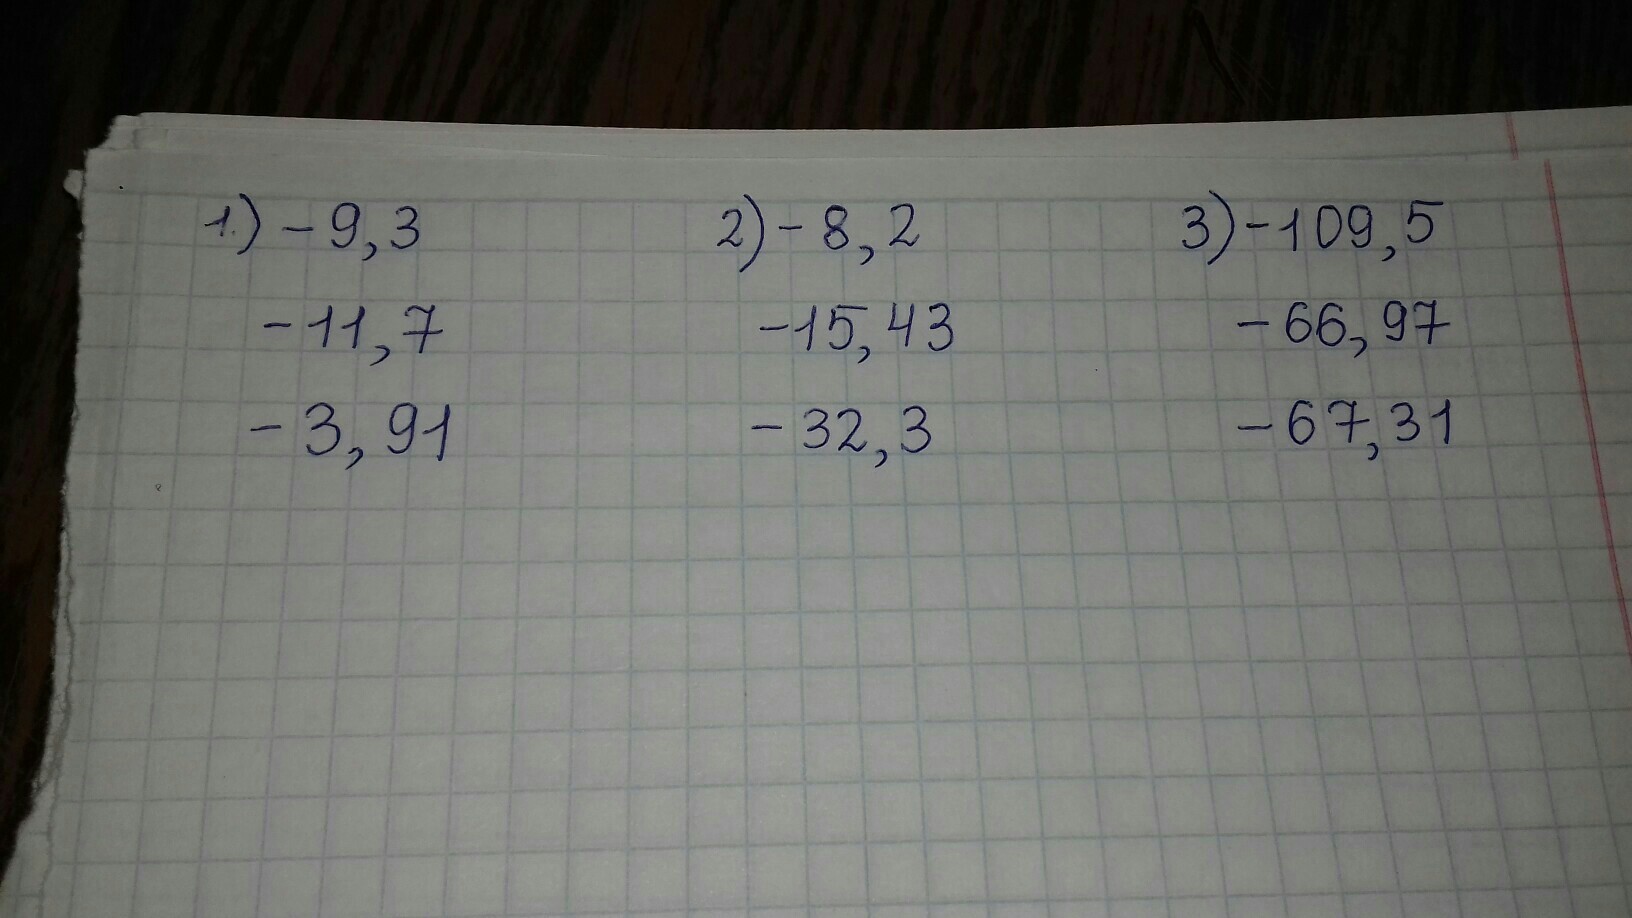 1.) -9,3 2) -8,2 3) -109,5
-11,7 -15,43 -66,97
-3,91 -32,3 -67,31